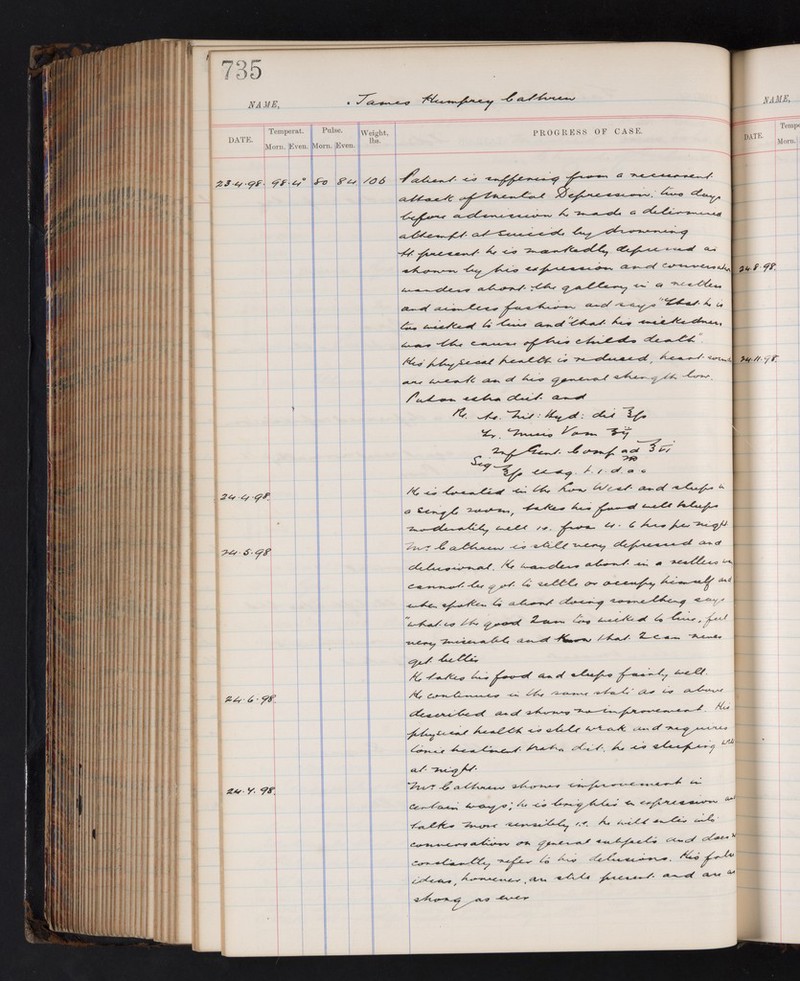 735
NAME, James Humphrey Cathrew
DATE. Temperat. Morn. Even. Pulse. Morn. Even. Weight, lbs. PROGRESS OF CASE.
23.4.98. 98.4° 80 84 106 Patient is suffering from a recurrent
attack of Mental Depression; two days
before admission he made a determined
attempt at suicide by drowning
At present he is markedly depressed as
shown by his expression and conversation
wanders about the gallery in a restless
and aimless fashion and says "that he is
too wicked to live and "that his wickedness
was the cause of his childs death"
His physical health is reduced, heart sounds
are weak and his general strength low.
Put on extra diet and
Rc. Ac. Nit: Hyd: dil ʒfs
Tr. Nucis Vom ʒij
Inf Gent. Comp ad ʒvi
Sig t.i.d.
24.4.98. He is located in the Low West and sleeps in
a single room, takes his food well & sleeps
moderately well i.e. from 4-6 hrs per night
24.5.98 Mr. Cathrew is still very depressed and
delusional. He wanders about in a restless way
cannot be got to settle or occupy himself and
when spoken to about doing something says
"what is the good I am too wicked to live, feel
very miserable and know that I can never
get better
He takes his food and sleeps fairly well.
24.6.98. He continues in the same state as is above
described and shows no improvement. His
physical health is still weak and requires
tonic treatment & extra diet. he is sleeping well
at night.
24.7.98. Mr. Cathrew shows improvement in
certain ways; he is brighter in expression and
talks more sensibly i.e. he will enter into
conversation on general subjects and does not
constantly refer to his delusions. His false
ideas, however, are still present and are as
strong as ever
NAME,
DATE. Temp
Morn.
24.8.98.
24.11.98.